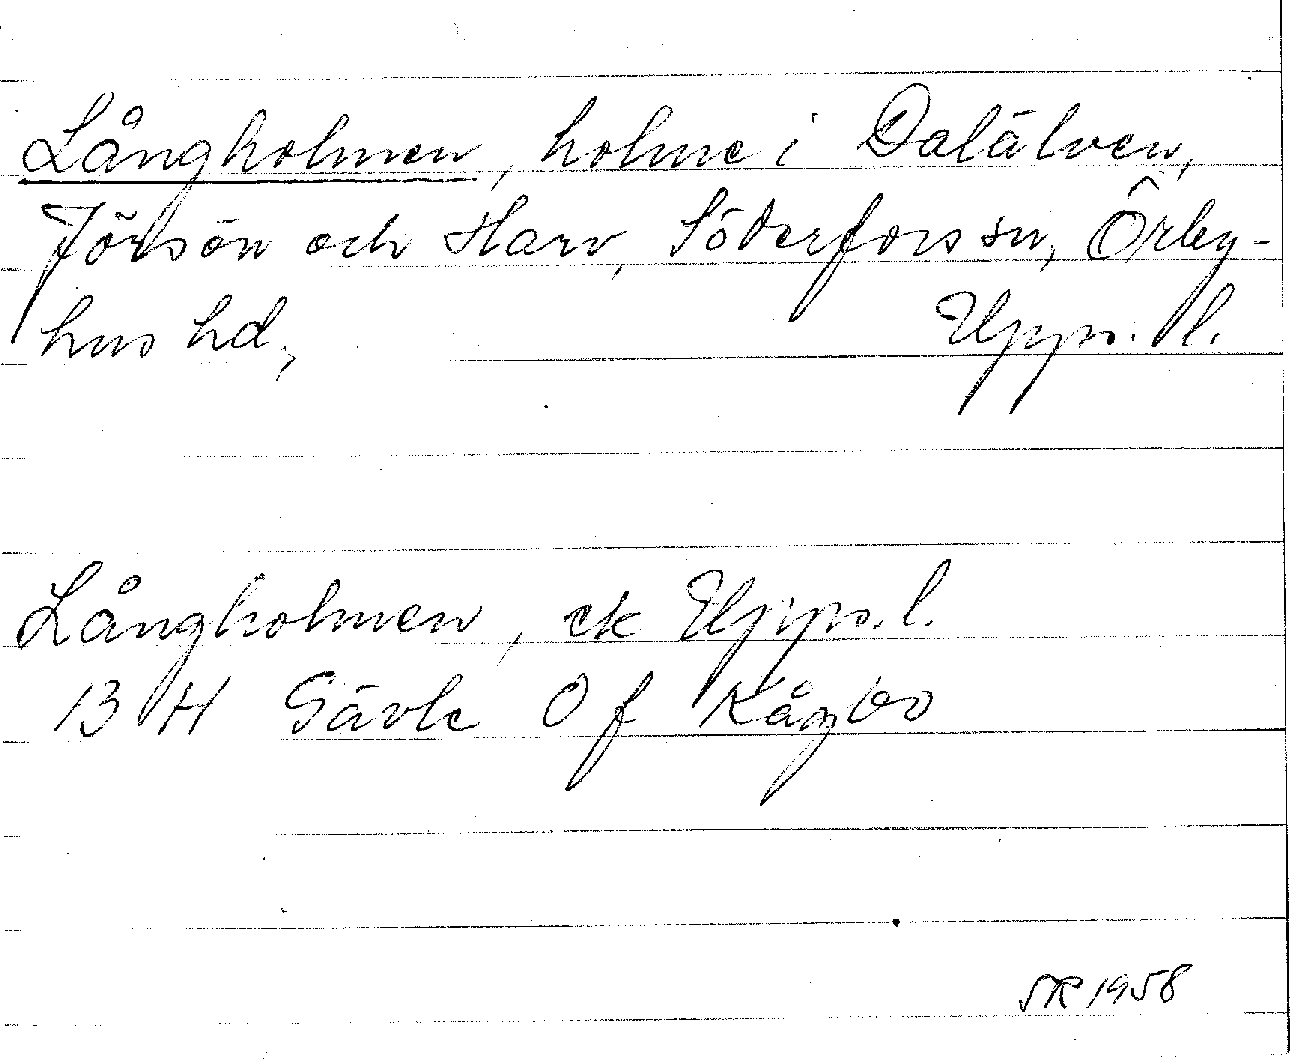 Långholmen, holme i Dalälven,
Jörsön och Harv, Söderfors sn, Örby-
hus hd, Upps. l.
Långholmen, ek Upps. l.
13 H Gävle 0 f Kågbo
SR 1958